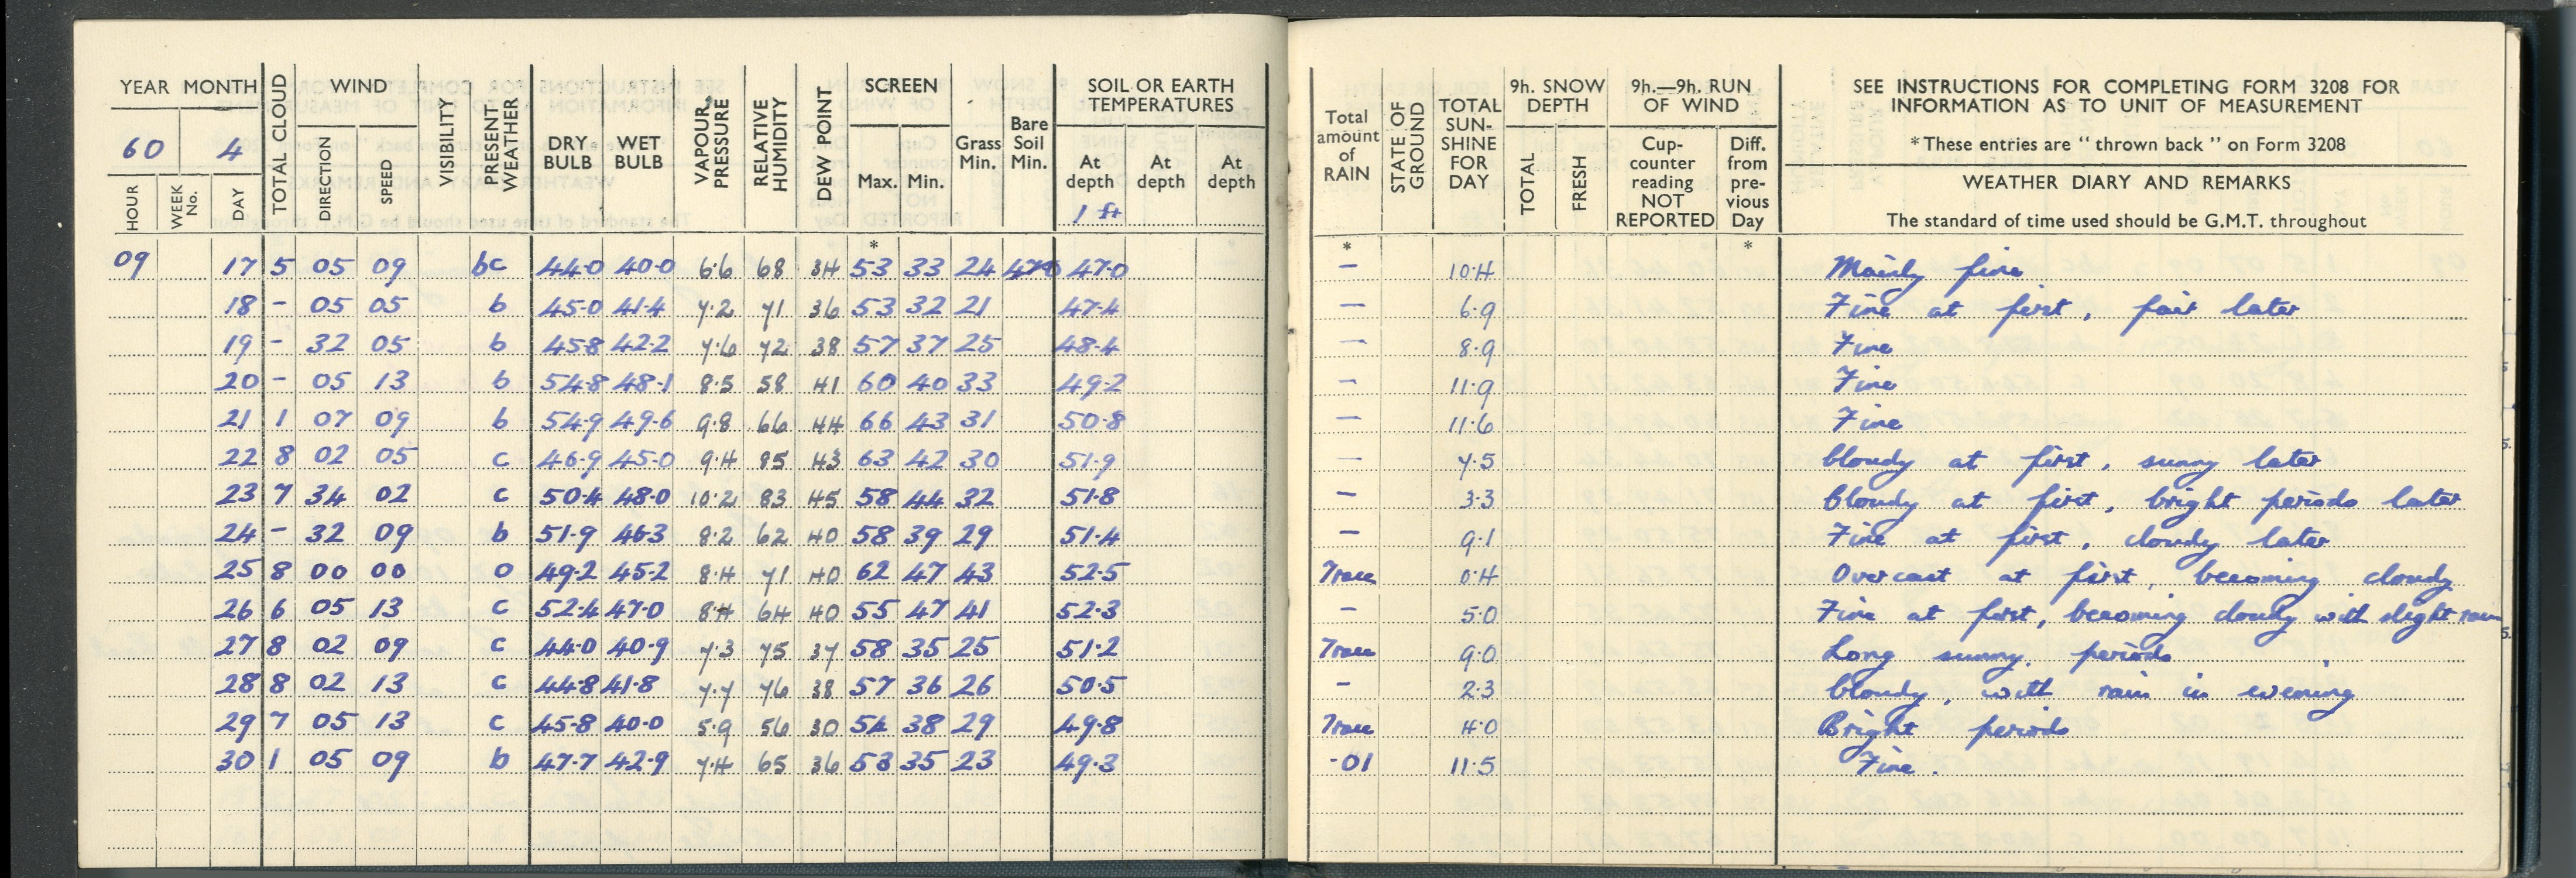 YEAR MONTH TOTAL CLOUD WIND VISIBILITY PRESENT WEATHER DRY BULB WET BULB VAPOUR PRESSURE RELATIVE HUMIDITY DEW POINT SCREEN Grass Min. Bare Soil Min. SOIL OR EARTH TEMPERATURES
60 4
HOUR WEEK No. DAY DIRECTION SPEED Max. Min. At depth At depth At depth
1 ft
*
09 17 5 05 09 bc 44.0 40.0 6.6 68 34 53 33 24 47.0
18 - 05 05 b 45.0 41.4 7.2 71 36 53 32 21 47.4
19 - 32 05 b 45.8 42.2 7.6 72 38 57 37 25 48.4
20 - 05 13 b 54.8 48.1 8.5 58 41 60 40 33 49.2
21 1 07 09 b 54.9 49.6 9.8 66 44 66 43 31 50.8
22 8 02 05 c 46.9 45.0 9.4 85 43 63 42 30 51.9
23 7 34 02 c 50.4 48.0 10.2 83 45 58 44 32 51.8
24 - 32 09 b 51.9 46.3 8.2 62 40 58 39 29 51.4
25 8 00 00 o 49.2 45.2 8.4 71 40 62 47 43 52.5
26 6 05 13 c 52.4 47.0 8.4 64 40 55 47 41 52.3
27 8 02 09 c 44.0 40.9 7.3 75 37 58 35 25 51.2
28 8 02 13 c 44.8 41.8 7.7 76 38 57 36 26 50.5
29 7 05 13 c 45.8 40.0 5.9 56 30 54 38 29 49.8
30 1 05 09 b 47.7 42.9 7.4 65 36 53 35 23 49.3
Total amount of RAIN STATE OF GROUND TOTAL SUN-SHINE FOR DAY 9h. SNOW DEPTH 9h.—9h. RUN OF WIND
TOTAL FRESH Cup-counter reading NOT REPORTED Diff. from pre-vious Day
SEE INSTRUCTIONS FOR COMPLETING FORM 3208 FOR
INFORMATION AS TO UNIT OF MEASUREMENT
* These entries are "thrown back" on Form 3208
WEATHER DIARY AND REMARKS
The standard of time used should be G.M.T. throughout
* *
— 10.4 Mainly fine
— 6.9 Fine at first, fair later
— 8.9 Fine
— 11.9 Fine
— 11.6 Fine
— 7.5 Cloudy at first, sunny later
— 3.3 Cloudy at first, bright periods later
— 9.1 Fine at first, cloudy later
Trace 0.4 Overcast at first, becoming cloudy
— 5.0 Fine at first, becoming cloudy with slight rain
Trace 9.0 Long sunny periods
— 2.3 Cloudy, with rain in evening
Trace 4.0 Bright periods
.01 11.5 Fine.